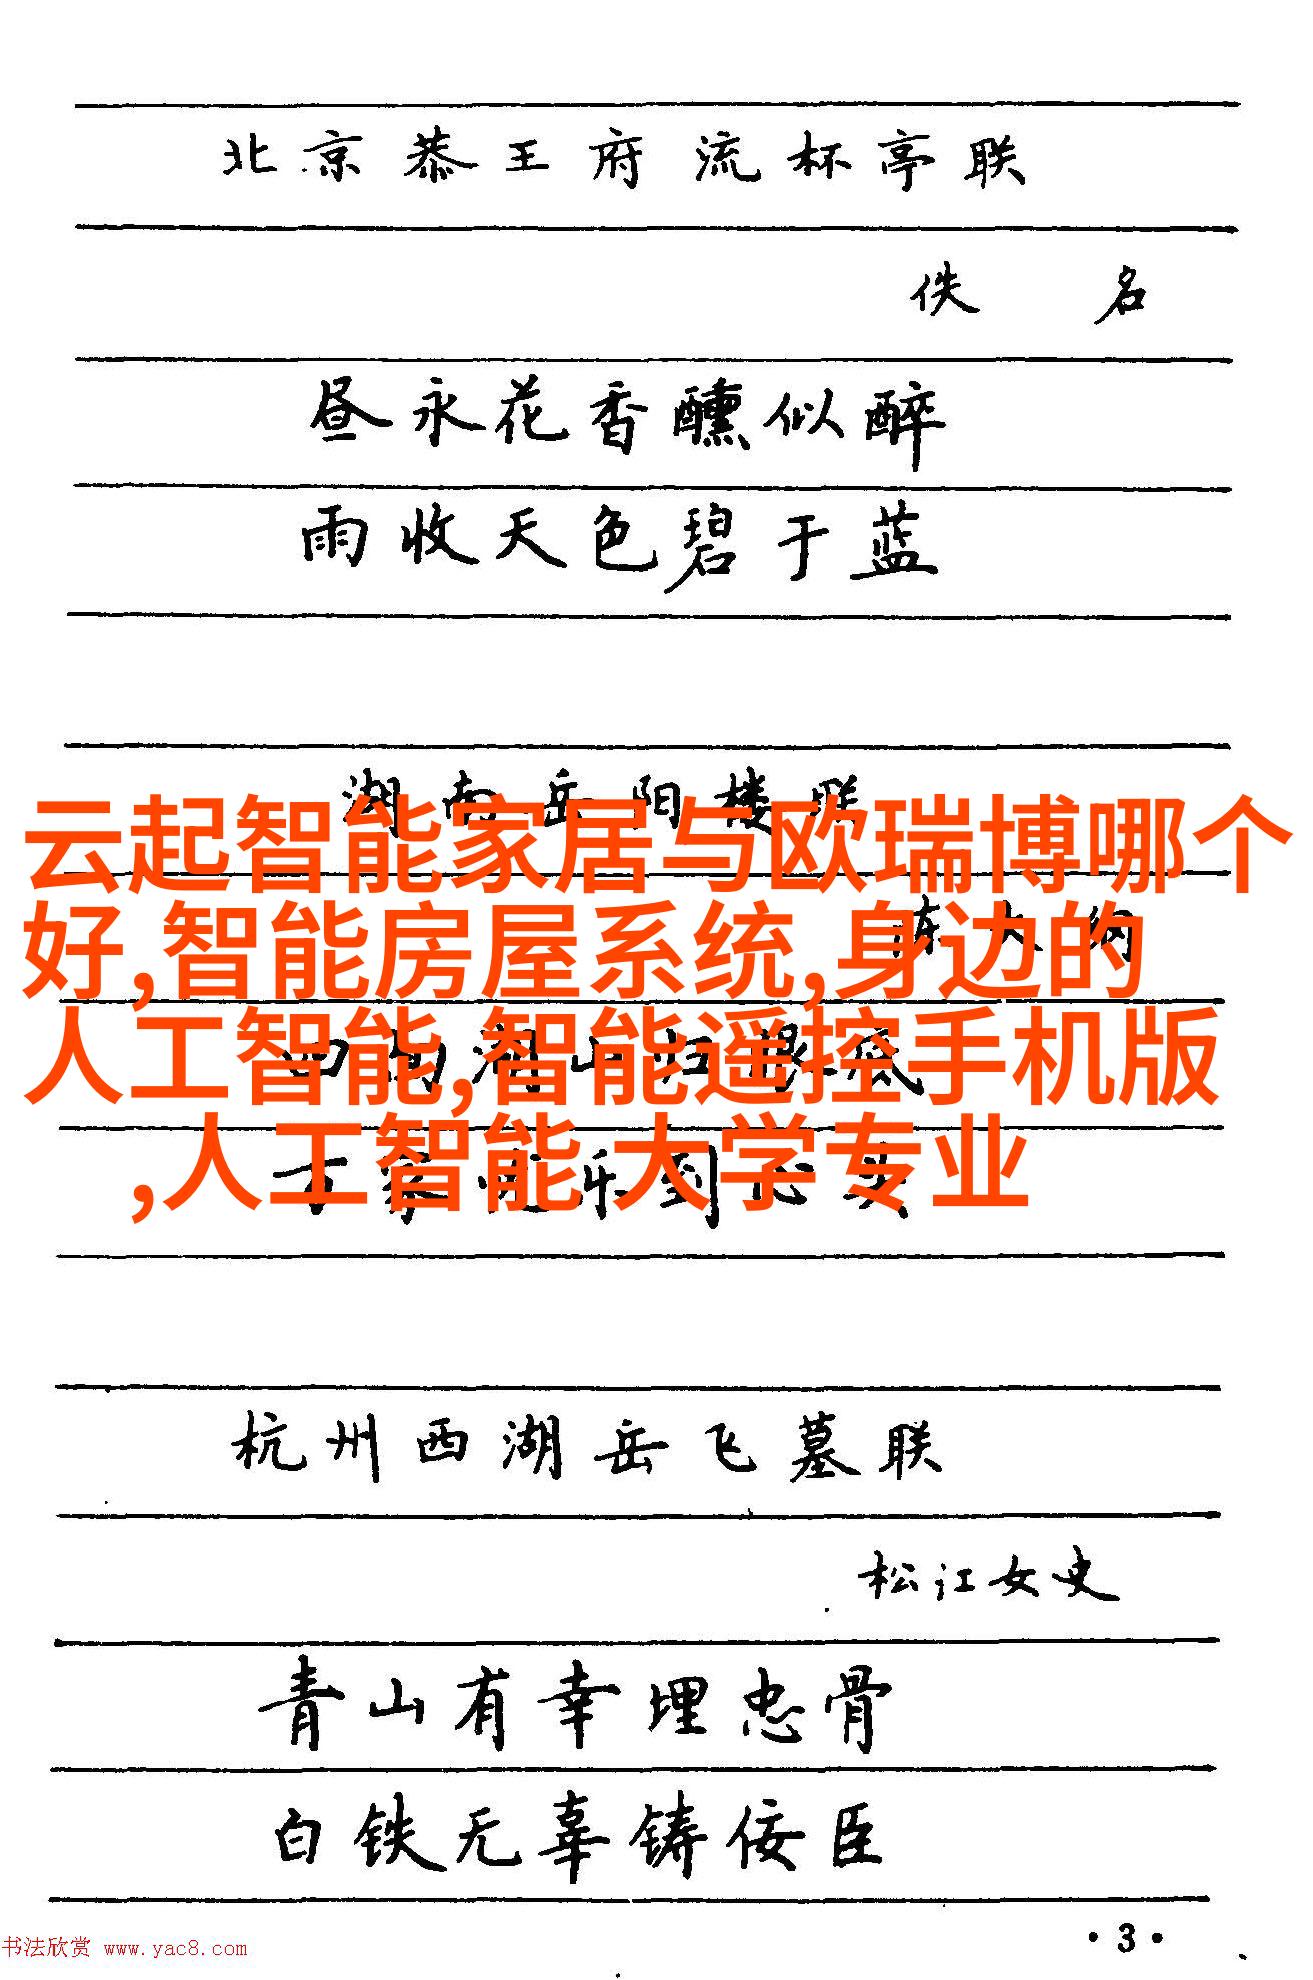 北京恭王府流杯亭联
佚名
昼永花香醺似醉
雨收天色碧于蓝
湖南岳阳楼联
云起智能家居与欧瑞博哪个
陈大纲
好,智能房屋系统,身边的
四面湖山归眼底
人工智能,智能遥控手机版
万家忧乐到心头
,人工智能 大学专业
杭州西湖岳飞墓联
松江女史
青山有幸埋忠骨
白铁无辜铸佞臣
·3·
书法欣赏 www.yac8.com